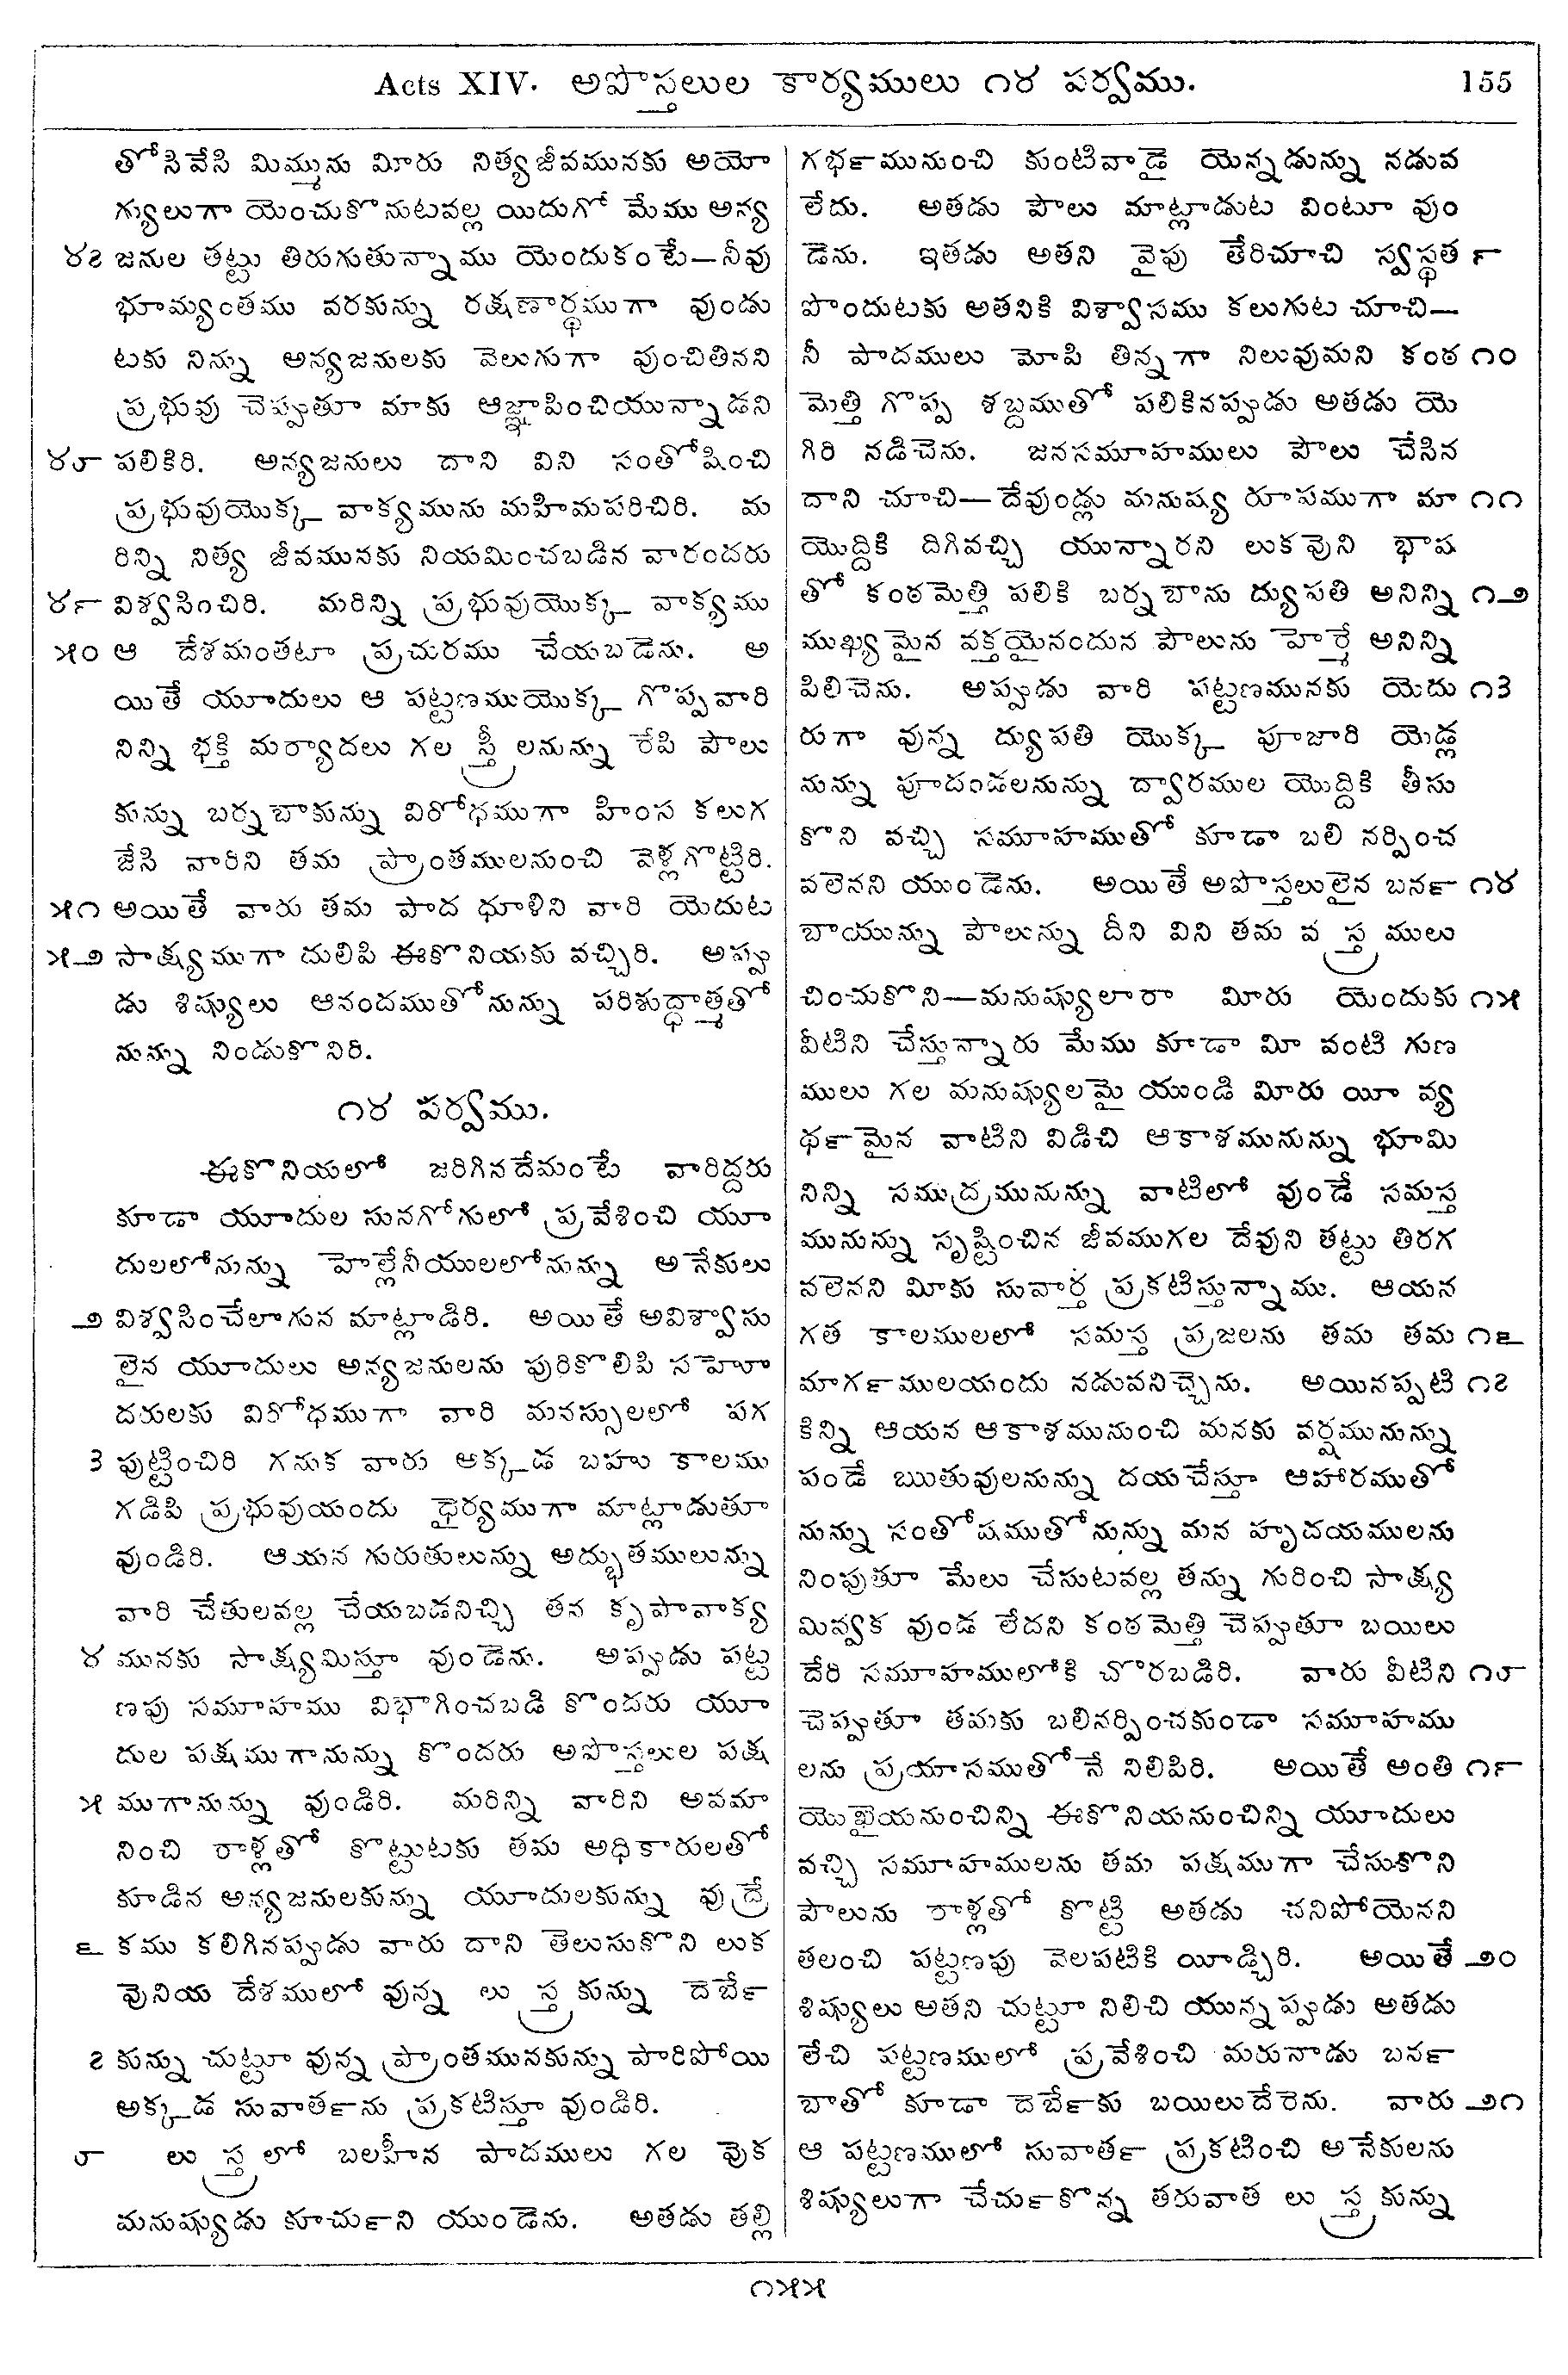 Acts XIV. అపొస్తలుల కార్యములు ౧౪ పర్వము. 155
తోసివేసి మిమ్మును మీరు నిత్యజీవమునకు అయో
గ్యులుగా యెంచుకొనుటవల్ల యిదుగో మేము అన్య
౪౭ జనుల తట్టు తిరుగుతున్నాము యెందుకంటే—నీవు
భూమ్యంతము వరకున్ను రక్షణార్థముగా వుండు
టకు నిన్ను అన్యజనులకు వెలుగుగా వుంచితినని
ప్రభువు చెప్పుతూ మాకు ఆజ్ఞాపించియున్నాడని
౪౮ పలికిరి. అన్యజనులు దాని విని సంతోషించి
ప్రభువుయొక్క వాక్యమును మహిమపరిచిరి. మ
రిన్ని నిత్య జీవమునకు నియమించబడిన వారందరు
౪౯ విశ్వసించిరి. మరిన్ని ప్రభువుయొక్క వాక్యము
౫౦ ఆ దేశమంతటా ప్రచురము చేయబడెను. అ
యితే యూదులు ఆ పట్టణముయొక్క గొప్పవారి
నిన్ని భక్తి మర్యాదలు గల స్త్రీలనున్ను రేపి పౌలు
కున్ను బర్నబాకున్ను విరోధముగా హింస కలుగ
జేసి వారిని తమ ప్రాంతములనుంచి వెళ్లగొట్టిరి.
౫౧ అయితే వారు తమ పాద ధూళిని వారి యెదుట
౫౨ సాక్ష్యముగా దులిపి ఈకొనియకు వచ్చిరి. అప్పు
డు శిష్యులు ఆనందముతోనున్ను పరిశుద్ధాత్మతో
నున్ను నిండుకొనిరి.
౧౪ పర్వము.
ఈకొనియలో జరిగినదేమంటే వారిద్దరు
కూడా యూదుల సునగోగులో ప్రవేశించి యూ
దులలోనున్ను హెల్లేనీయులలోనున్ను అనేకులు
౨ విశ్వసించేలాగున మాట్లాడిరి. అయితే అవిశ్వాసు
లైన యూదులు అన్యజనులను పురికొలిపి సహో
దరులకు విరోధముగా వారి మనస్సులలో పగ
౩ పుట్టించిరి గనుక వారు అక్కడ బహు కాలము
గడిపి ప్రభువుయందు ధైర్యముగా మాట్లాడుతూ
వుండిరి. ఆయన గురుతులున్ను అద్భుతములున్ను
వారి చేతులవల్ల చేయబడనిచ్చి తన కృపావాక్య
౪ మునకు సాక్ష్యమిస్తూ వుండెను. అప్పుడు పట్ట
ణపు సమూహము విభాగించబడి కొందరు యూ
దుల పక్షముగానున్ను కొందరు అపొస్తలుల పక్ష
౫ ముగానున్ను వుండిరి. మరిన్ని వారిని అవమా
నించి రాళ్లతో కొట్టుటకు తమ అధికారులతో
కూడిన అన్యజనులకున్ను యూదులకున్ను వుద్రే
౬ కము కలిగినప్పుడు వారు దాని తెలుసుకొని లుక
వునియ దేశములో వున్న లుస్త్రకున్ను దెర్బే
౭ కున్ను చుట్టూ వున్న ప్రాంతమునకున్ను పారిపోయి
అక్కడ సువార్తను ప్రకటిస్తూ వుండిరి.
౮ లుస్త్రలో బలహీన పాదములు గల వొక
మనుష్యుడు కూర్చుని యుండెను. అతడు తల్లి
గర్భమునుంచి కుంటివాడై యెన్నడున్ను నడువ
లేదు. అతడు పౌలు మాట్లాడుట వింటూ వుం
డెను. ఇతడు అతని వైపు తేరిచూచి స్వస్థత ౯
పొందుటకు అతనికి విశ్వాసము కలుగుట చూచి—
నీ పాదములు మోపి తిన్నగా నిలువుమని కంఠ ౧౦
మెత్తి గొప్ప శబ్దముతో పలికినప్పుడు అతడు యె
గిరి నడిచెను. జనసమూహములు పౌలు చేసిన
దాని చూచి—దేవుండ్లు మనుష్య రూపముగా మా ౧౧
యొద్దికి దిగివచ్చి యున్నారని లుకవుని భాష
తో కంఠమెత్తి పలికి బర్నబాను ద్యుపతి అనిన్ని ౧౨
ముఖ్యమైన వక్తయైనందున పౌలును హెర్మే అనిన్ని
పిలిచెను. అప్పుడు వారి పట్టణమునకు యెదు ౧౩
రుగా వున్న ద్యుపతి యొక్క పూజారి యెడ్ల
నున్ను పూదండలనున్ను ద్వారముల యొద్దికి తీసు
కొని వచ్చి సమూహముతో కూడా బలి నర్పించ
వలెనని యుండెను. అయితే అపొస్తలులైన బర్న ౧౪
బాయున్ను పౌలున్ను దీని విని తమ వస్త్రములు
చించుకొని—మనుష్యులారా మీరు యెందుకు ౧౫
వీటిని చేస్తున్నారు మేము కూడా మీ వంటి గుణ
ములు గల మనుష్యులమై యుండి మీరు యీ వ్య
ర్థమైన వాటిని విడిచి ఆకాశమునున్ను భూమి
నిన్ని సముద్రమునున్ను వాటిలో వుండే సమస్త
మునున్ను సృష్టించిన జీవముగల దేవుని తట్టు తిరగ
వలెనని మీకు సువార్త ప్రకటిస్తున్నాము. ఆయన
గత కాలములలో సమస్త ప్రజలను తమ తమ ౧౬
మార్గములయందు నడువనిచ్చెను. అయినప్పటి ౧౭
కిన్ని ఆయన ఆకాశమునుంచి మనకు వర్షమునున్ను
పండే ఋతువులనున్ను దయచేస్తూ ఆహారముతో
నున్ను సంతోషముతోనున్ను మన హృదయములను
నింపుతూ మేలు చేసుటవల్ల తన్ను గురించి సాక్ష్య
మివ్వక వుండ లేదని కంఠమెత్తి చెప్పుతూ బయిలు
దేరి సమూహములోకి చొరబడిరి. వారు వీటిని ౧౮
చెప్పుతూ తమకు బలినర్పించకుండా సమూహము
లను ప్రయాసముతోనే నిలిపిరి. అయితే అంతి ౧౯
యొఖైయనుంచిన్ని ఈకొనియనుంచిన్ని యూదులు
వచ్చి సమూహములను తమ పక్షముగా చేసుకొని
పౌలును రాళ్లతో కొట్టి అతడు చనిపోయెనని
తలంచి పట్టణపు వెలపటికి యీడ్చిరి. అయితే ౨౦
శిష్యులు అతని చుట్టూ నిలిచి యున్నప్పుడు అతడు
లేచి పట్టణములో ప్రవేశించి మరునాడు బర్న
బాతో కూడా దెర్బేకు బయిలుదేరెను. వారు ౨౧
ఆ పట్టణములో సువార్త ప్రకటించి అనేకులను
శిష్యులుగా చేర్చుకొన్న తరువాత లుస్త్రకున్ను
౧౫౫